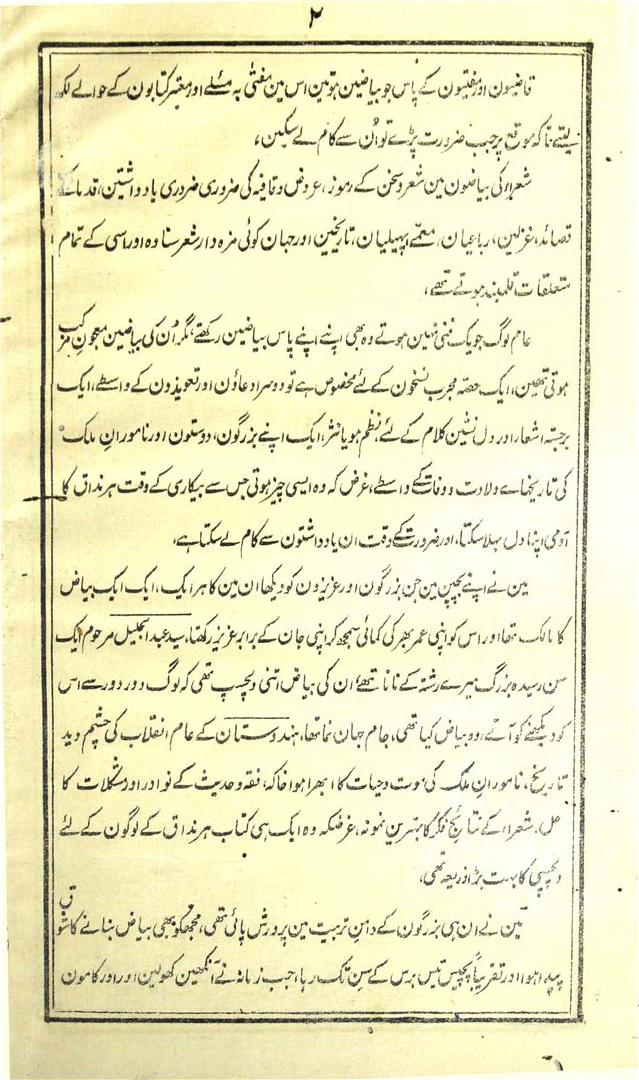 ۲
قاضیون اور مفتیون کے پاس جو بیاضین ہوتین اس مین مفتیٰ بہ مسئلے اور معتبر کتابون کے حوالے لکھ
لیتے تاکہ موقع پر جب ضرورت پڑے تو اُن سے کام لے سکین،
شعراء کی بیاضون مین شعر و سخن کے رموز، عروض و قافیہ کی ضروری ضروری یادداشتین، قدماء کے
قصائد، غزلین، رباعیان، معمے پہیلیان، تاریخین اور جہان کوئی مزہ دار شعر سنا وہ اور اسی کے تمام
متعلقات قلمبند ہوتے تھے،
عام لوگ جو یک فنی نہین ہوتے وہ بھی اپنے اپنے پاس بیاضین رکھتے، مگر اُن کی بیاضین معجون مرکب
ہوتی تھین، ایک حصہ مجرب نسخون کے لئے مخصوص ہے تو دوسرا دعاؤن اور تعویذون کے واسطے، ایک
برجستہ اشعار اور دل نشین کلام کے لئے، نظم ہو یا نثر، ایک اپنے بزرگون، دوستون اور نامورانِ ملک
کی تاریخہاے ولادت و وفات کے واسطے، غرض کہ وہ ایسی چیز ہوتی جس سے بیکاری کے وقت ہر مذاق کا
آدمی اپنا دل بہلا سکتا، اور ضرورت کے وقت ان یادداشتون سے کام لے سکتا ہے،
مین نے اپنے بچپن مین جن بزرگون اور عزیزون کو دیکھا ان مین کا ہر ایک، ایک ایک بیاض
کا مالک تھا اور اس کو اپنی عمر بھر کی کمائی سمجھ کر اپنی جان کے برابر عزیز رکھتا، سید عبد الجلیل مرحوم ایک
سن رسیدہ بزرگ میرے رشتہ کے نانا تھے، ان کی بیاض اتنی دلچسپ تھی کہ لوگ دور دور سے اس
کو دیکھنے کو آتے، وہ بیاض کیا تھی، جام جہان نما تھا، ہندوستان کے عام انقلاب کی چشم دید
تاریخ، نامورانِ ملک کی موت و حیات کا ابھرا ہوا خاکہ، فقہ و حدیث کے نوادر اور مشکلات کا
حل، شعراء کے نتائجِ فکر کا بہترین نمونہ، غرضکہ وہ ایک ہی کتاب ہر مذاق کے لوگون کے لئے
دلچسپی کا بہت بڑا ذریعہ تھی،
مین نے ان ہی بزرگون کے دامنِ تربیت مین پرورش پائی تھی، مجھکو بھی بیاض بنانے کا شوق
پیدا ہوا اور تقریباً پچیس تیس برس کے سن تک رہا، جب زمانہ نے آنکھین کھولین اور اور کامون